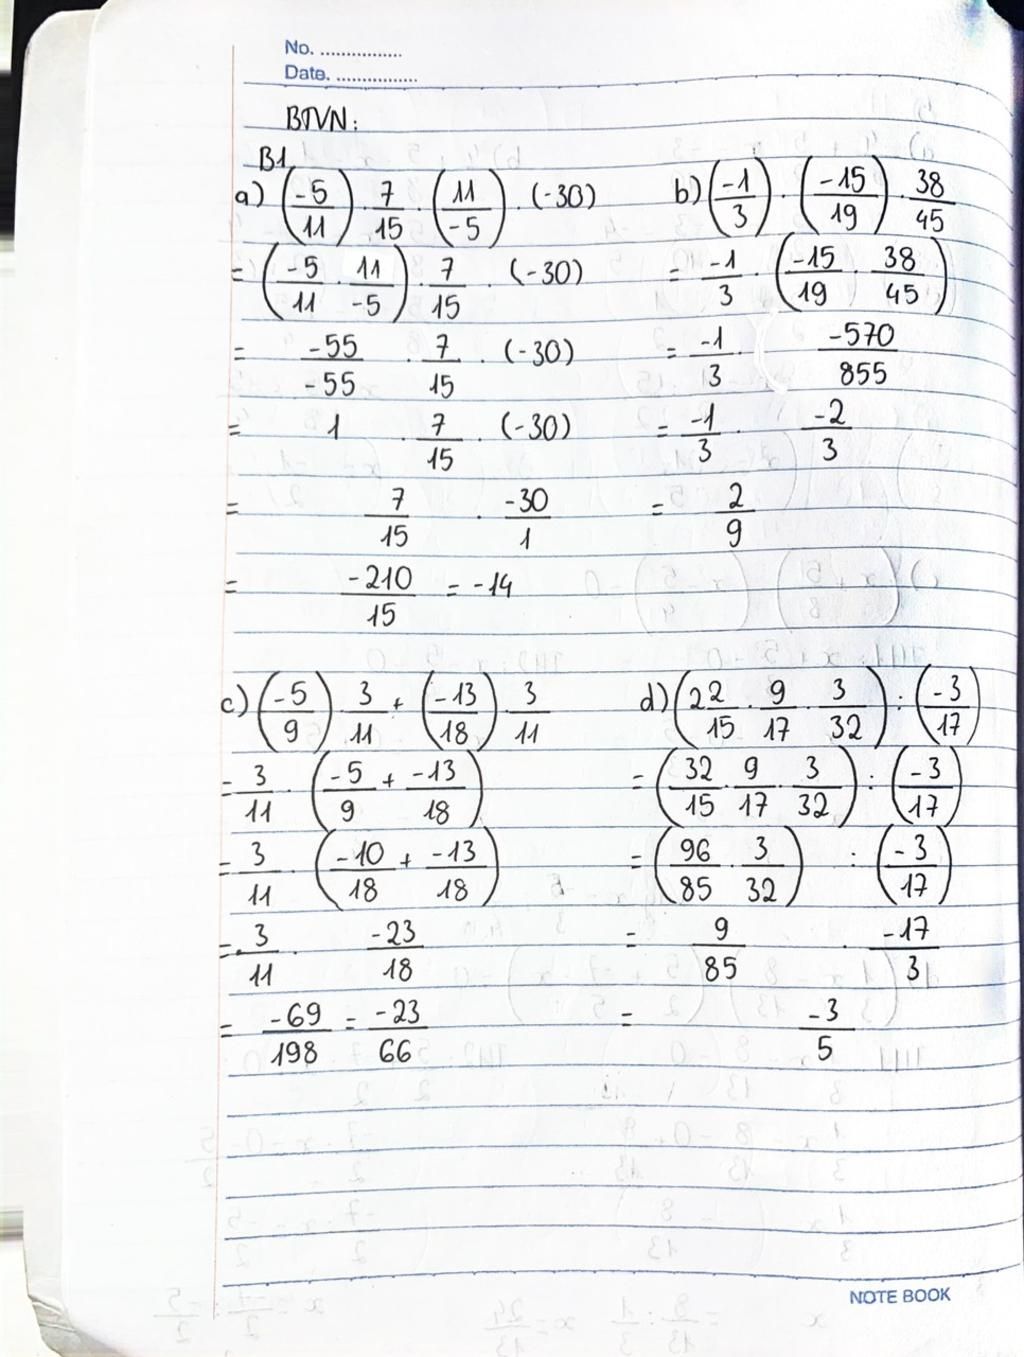 No. ................
Date. ................
BTVN:
B1
a) (-5/11) . 7/15 . (11/-5) . (-30)
= (-5/11 . 11/-5) . 7/15 . (-30)
= -55/-55 . 7/15 . (-30)
= 1 . 7/15 . (-30)
= 7/15 . -30/1
= -210/15 = -14
b) (-1/3) . (-15/19) . 38/45
= -1/3 . (-15/19 . 38/45)
= -1/3 . -570/855
= -1/3 . -2/3
= 2/9
c) (-5/9) . 3/11 + (-13/18) . 3/11
= 3/11 . (-5/9 + -13/18)
= 3/11 . (-10/18 + -13/18)
= 3/11 . -23/18
= -69/198 = -23/66
d) (22/15 . 9/17 . 3/32) : (-3/17)
= (32/15 . 9/17 . 3/32) : (-3/17)
= (96/85 . 3/32) : (-3/17)
= 9/85 . -17/3
= -3/5
NOTE BOOK